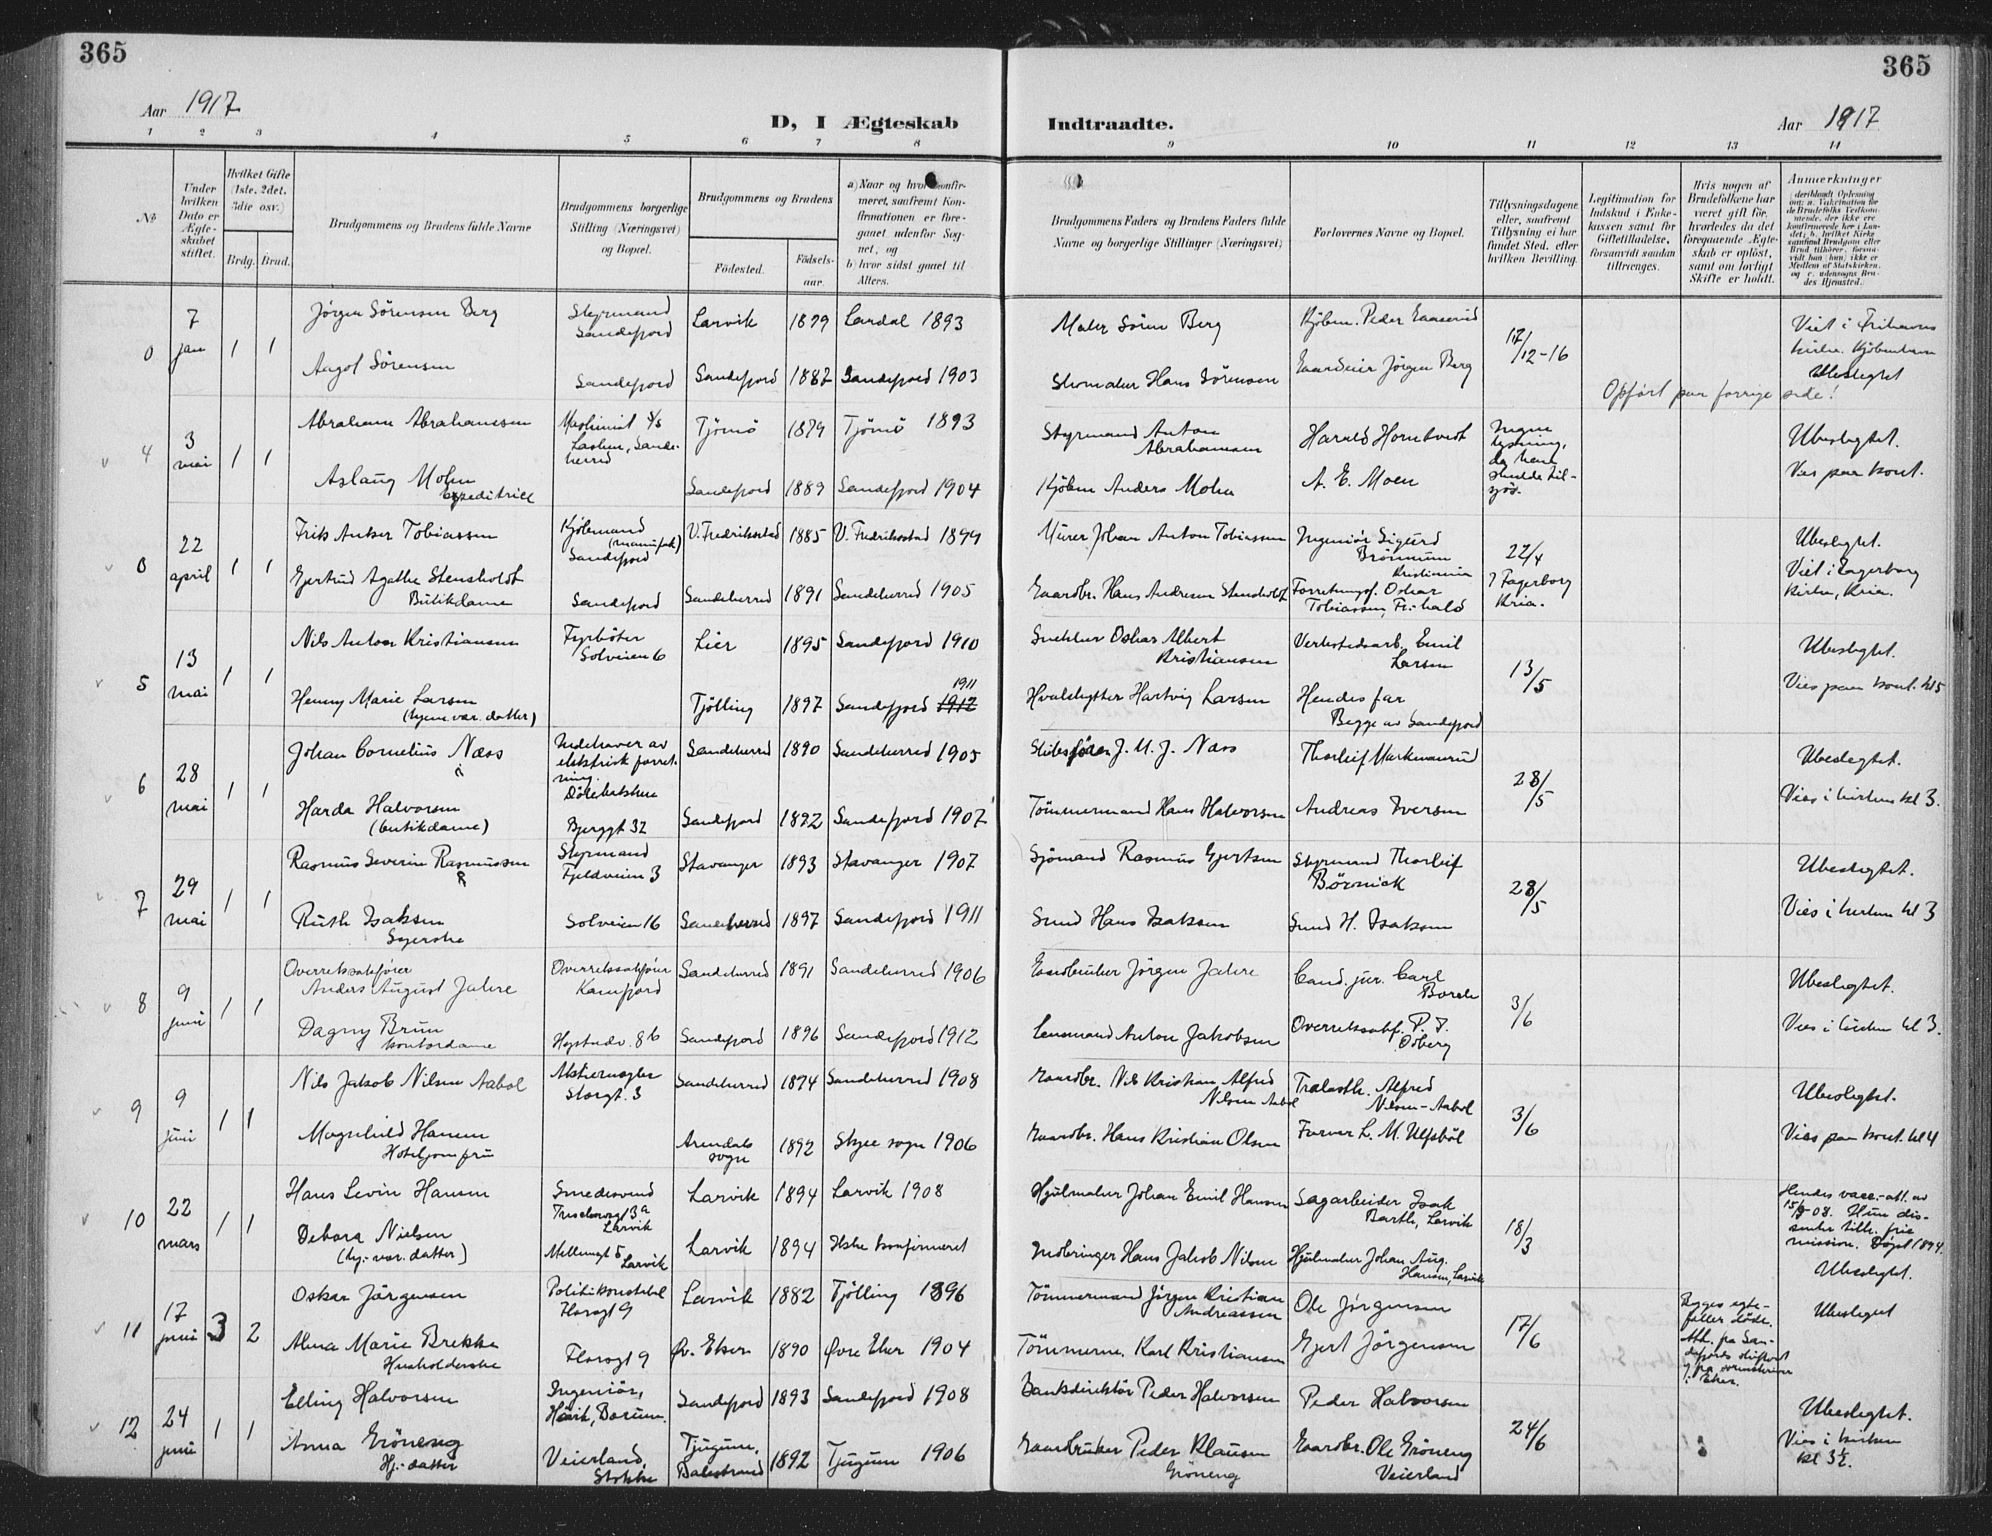 365
365
Aar 1917
D, I Ægteskab Indtraadte.
Aar 1917
1 2 3 4 5 6 7 8 9 10 11 12 13 14
No
Under hvilken Dato er Ægteskabet stiftet.
Hvilket Gifte (1ste, 2det, 3die osv.)
Brdg. Brud.
Brudgommens og Brudens fulde Navne
Brudgommens borgerlige Stilling (Næringsvei) og Bopæl.
Brudgommens og Brudens
Födested.
Födselsaar.
a) Naar og hvor konfirmeret, saafremt Konfirmationen er foregaaet udenfor Sognet, og
b) hvor sidst gaaet til Alters.
Brudgommens Faders og Brudens Faders fulde Navne og borgerlige Stillinger (Næringsvei)
Forlovernes Navne og Bopæl.
Tillysningsdagene eller, saafremt Tillysning ei har fundet Sted, efter hvilken Bevilling.
Legitimation for Indskud i Enkekassen samt for Giftetilladelse, forsaavidt saadan tiltrænges.
Hvis nogen af Brudefolkene har været gift før, hvorledes da det foregaaende Ægteskab er oplöst, samt om lovligt Skifte er holdt.
Anmerkninger
0 7 jan 1 1 Jörgen Sörensen Berg Styrmand Sandefjord Larvik 1879 Lardal 1893 Maler Sören Berg 17/12-16
Aagot Sörensen Sandefjord Sandefjord 1882 Sandefjord 1903 Skomaker Hans Sörensen Gaardeier Jörgen Berg Ubeslegtet
Opfört paa forrige side!
4 3 mai 1 1 Abraham Abrahamsen Tjömö 1879 Tjömö 1893 Styrmand Anton Abrahamsen Harald Horntvedt Ubeslegtet.
Aslaug Mohn Sandefjord 1889 Sandefjord 1904 Kjöbm Anders Mohn A. E. Moen Vies paa kont.
0 22 april 1 1 Frits Anker Tobiassen Kjöbmand Sandefjord V. Fredriksstad 1885 V. Fredriksstad 1899 Murer Johan Anton Tobiassen Ingeniör Sigurd Kristiania 22/4 Ubeslegtet.
Gjertrud Agathe Stensholdt Butikdame Sandefjord Sandeherred 1891 Sandeherred 1905 Gaardbr. Hans Andresen Stensholdt Forretningsf. Oskar Tobiassen, Fr.hald i Fagerborg Kria. Viet i Fagerborg kirke, Kria.
5 13 mai 1 1 Nils Anton Kristiansen Fyrböter Solveien 6 Lier 1895 Sandefjord 1910 Snekker Oskar Albert Kristiansen Verkstedsarb. Emil Larsen 13/5 Ubeslegtet.
Henny Marie Larsen (hjemmevær. datter) Tjölling 1897 Sandefjord 1911 Hvalskytter Hartvig Larsen Hendes far Begge av Sandefjord Vies paa kont. kl 5
6 28 mai 1 1 Johan Cornelius Næss Indehaver av elektrisk forretning. Sandeherred 1890 Sandeherred 1905 Skibsförer J. M. J. Næss 28/5 Ubeslegtet.
Harda Halvorsen (butikdame) Bjerggt 32 Sandefjord 1892 Sandefjord 1907 Tömmermand Hans Halvorsen Andreas Iversen Vies i kirken kl 3.
7 29 mai 1 1 Rasmus Severin Rasmussen Styrmand Fjeldveien 3 Stavanger 1893 Stavanger 1907 Sjömand Rasmus Gjertsen Styrmand Thorleif 28/5 Ubeslegtet.
Ruth Isaksen Syerske Solveien 16 Sandeherred 1897 Sandefjord 1911 Smed Hans Isaksen Smed H. Isaksen Vies i kirken kl 3
8 9 juni 1 1 Overretssakförer Anders August Jahre Overretssakförer Kamfjord Sandeherred 1891 Sandeherred 1906 Gaardbruker Jörgen Jahre Cand. jur. Carl 3/6 Ubeslegtet.
Dagny Brun kontordame Sandefjord 1896 Sandefjord 1912 Lensmand Anton Jakobsen Overretssakf. P. T. Vies i kirken kl 3.
9 9 juni 1 1 Nils Jakob Nilsen Aabol Aktiemægler Storgt. 3 Sandeherred 1874 Sandeherred 1908 Gaardbr. Nils Kristian Alfred Nilsen Aabol Trælasth. Alfred Nilsen-Aabol 3/6 Ubeslegtet.
Magnhild Hansen Hoteljomfru Arendals sogn 1892 sogn 1906 Gaardbr. Hans Kristian Olsen Farver L. M. Ulfsbøl Vies paa kont. kl 4
10 22 mars 1 1 Hans Levin Hansen Smedesvend Larvik Larvik 1894 Larvik 1908 Hjulmaker Johan Emil Hansen Sagarbeider Isak Barth, Larvik 18/3
Debora Nielsen (hj.-vær. datter) Larvik Larvik 1894 Ikke konfirmeret Indbringer Hans Jakob Nilsen Hjulmaker Johan Aug. Hansen, Larvik
Hendes vacc.-att. av 15/9-08. Hun dissenter tilh. frie mission. Døpt 1894. Ubeslegtet.
11 17 juni 3 2 Oskar Jörgensen Politikonstabel Floragt 9 Larvik 1882 Tjölling 1896 Tömmermand Jörgen Kristian Andreassen Ole Jörgensen 17/6 Ubeslegtet
Alma Marie Brekke Husholderske Floragt 9 Öv. Eker 1890 Övre Eker 1904 Tömmerm. Karl Kristiansen Gjert Jörgensen
Begges egtefæller döde. Att. pa Sandefjords skifteret
12 24 juni 1 1 Elling Halvorsen Ingeniör, Hövik, Bærum. Sandefjord 1893 Sandefjord 1908 Bankdirektör Peder Halvorsen Peder Halvorsen 24/6 Ubeslegtet.
Anna Gröneng Hj.-datter Veierland, Stokke Tjugum, Balestrand 1892 Tjugum 1906 Gaardbruker Peder Klausen Gröneng Gaardbr. Ole Gröneng Veierland Vies i kirken kl 3½.